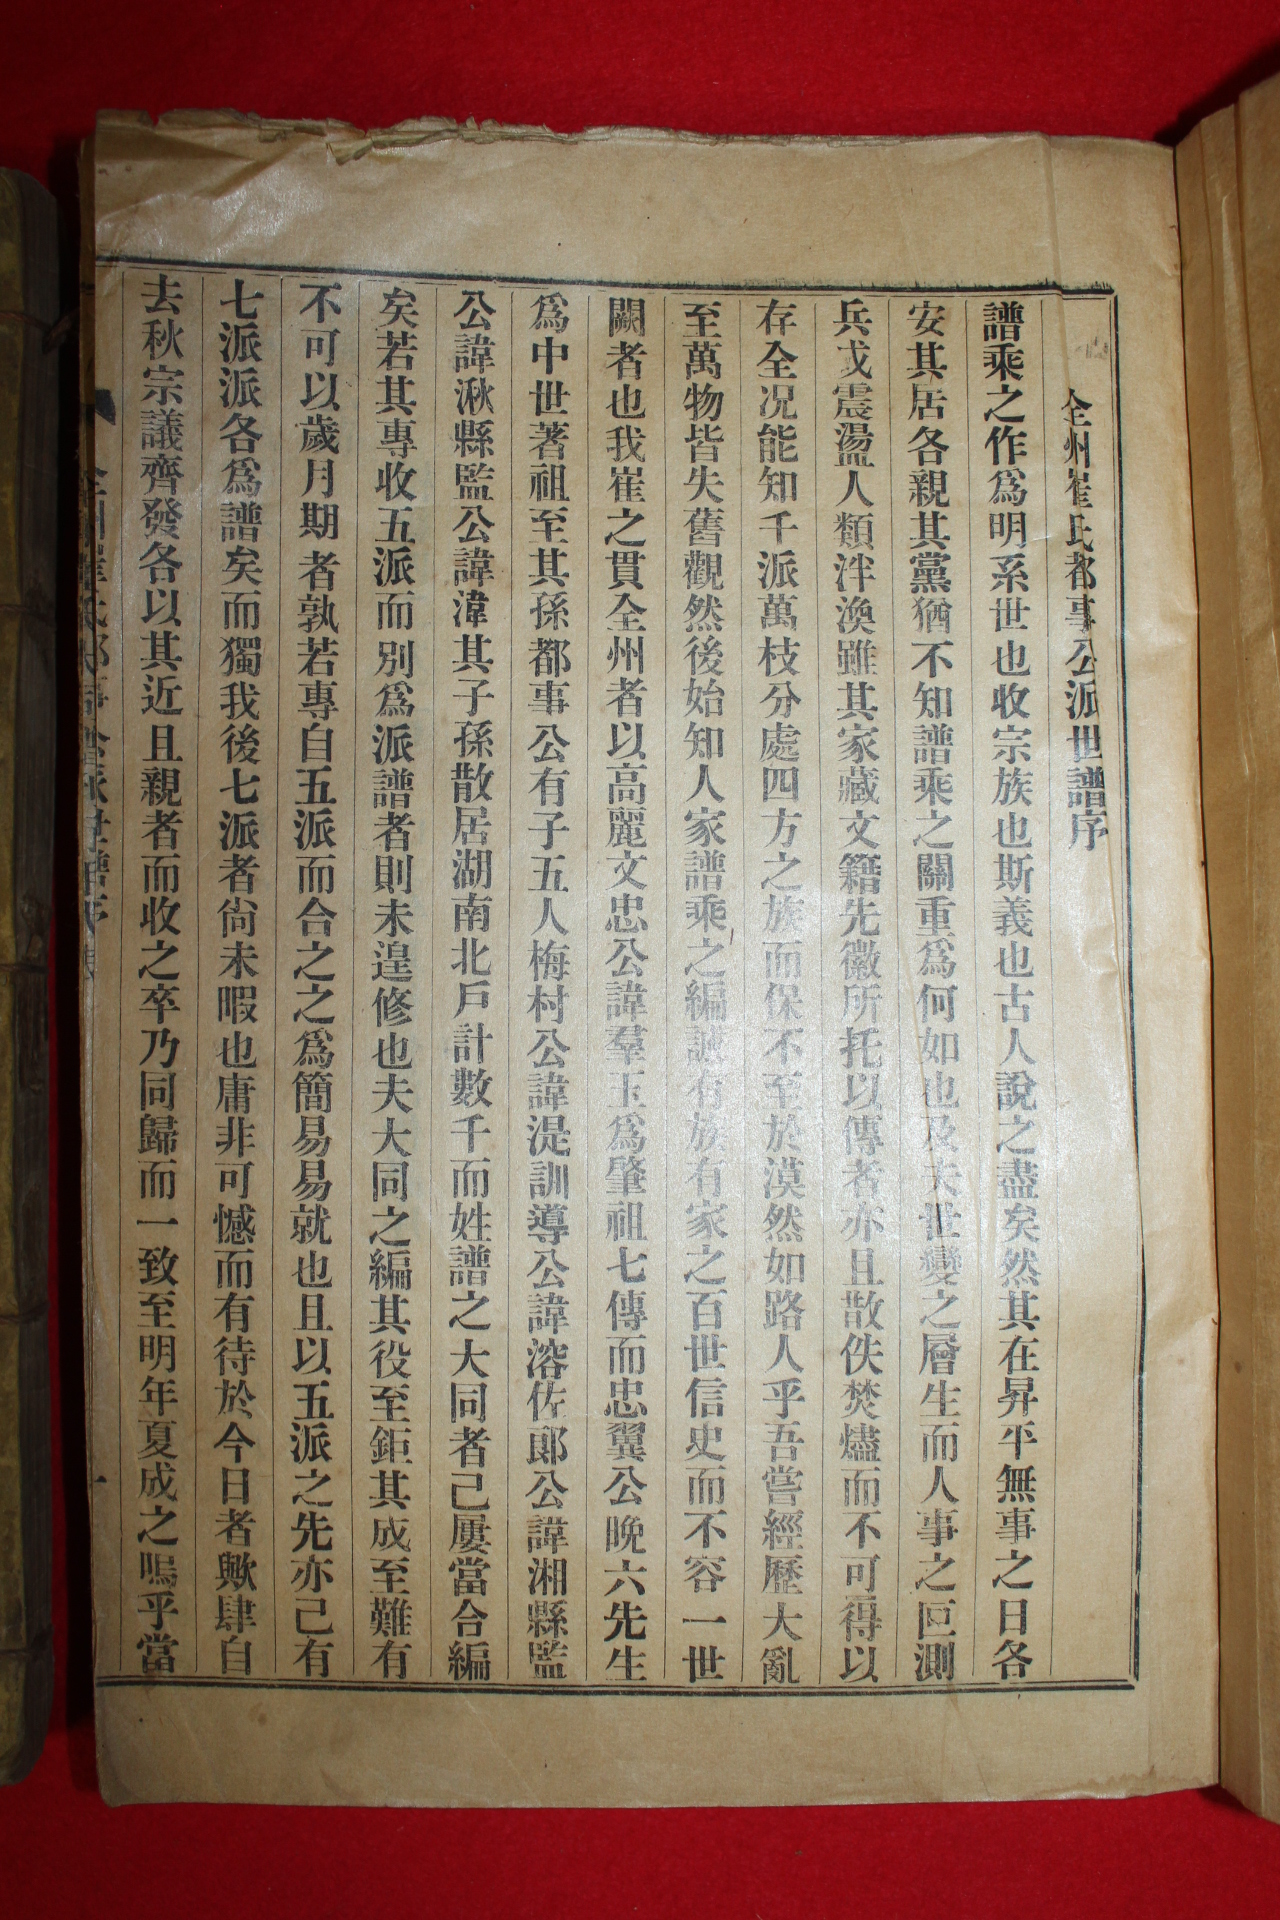 全州崔氏都事公派世譜序
譜乘之作爲明系世也收宗族也斯義也古人說之盡矣然其在昇平無事之日各
安其居各親其黨猶不知譜乘之關重爲何如也及夫世變之層生而人事之叵測
兵戈震盪人類泮渙雖其家藏文籍先徽所托以傳者亦且散佚焚燼而不可得以
存全况能知千派萬枝分處四方之族而保不至於漠然如路人乎吾嘗經歷大亂
至萬物皆失舊觀然後始知人家譜乘之編誠有族有家之百世信史而不容一世
闕者也我崔之貫全州者以高麗文忠公諱羣玉爲肇祖七傳而忠翼公晚六先生
爲中世著祖至其孫都事公有子五人梅村公諱湜訓導公諱溶佐郞公諱湘縣監
公諱湫縣監公諱湋其子孫散居湖南北戶計數千而姓譜之大同者己屢當合編
矣若其專收五派而別爲派譜者則未遑修也夫大同之編其役至鉅其成至難有
不可以歲月期者孰若專自五派而合之之爲簡易易就也且以五派之先亦己有
七派派各爲譜矣而獨我後七派者尙未暇也庸非可憾而有待於今日者歟肆自
去秋宗議齊發各以其近且親者而收之卒乃同歸而一致至明年夏成之嗚乎當
一